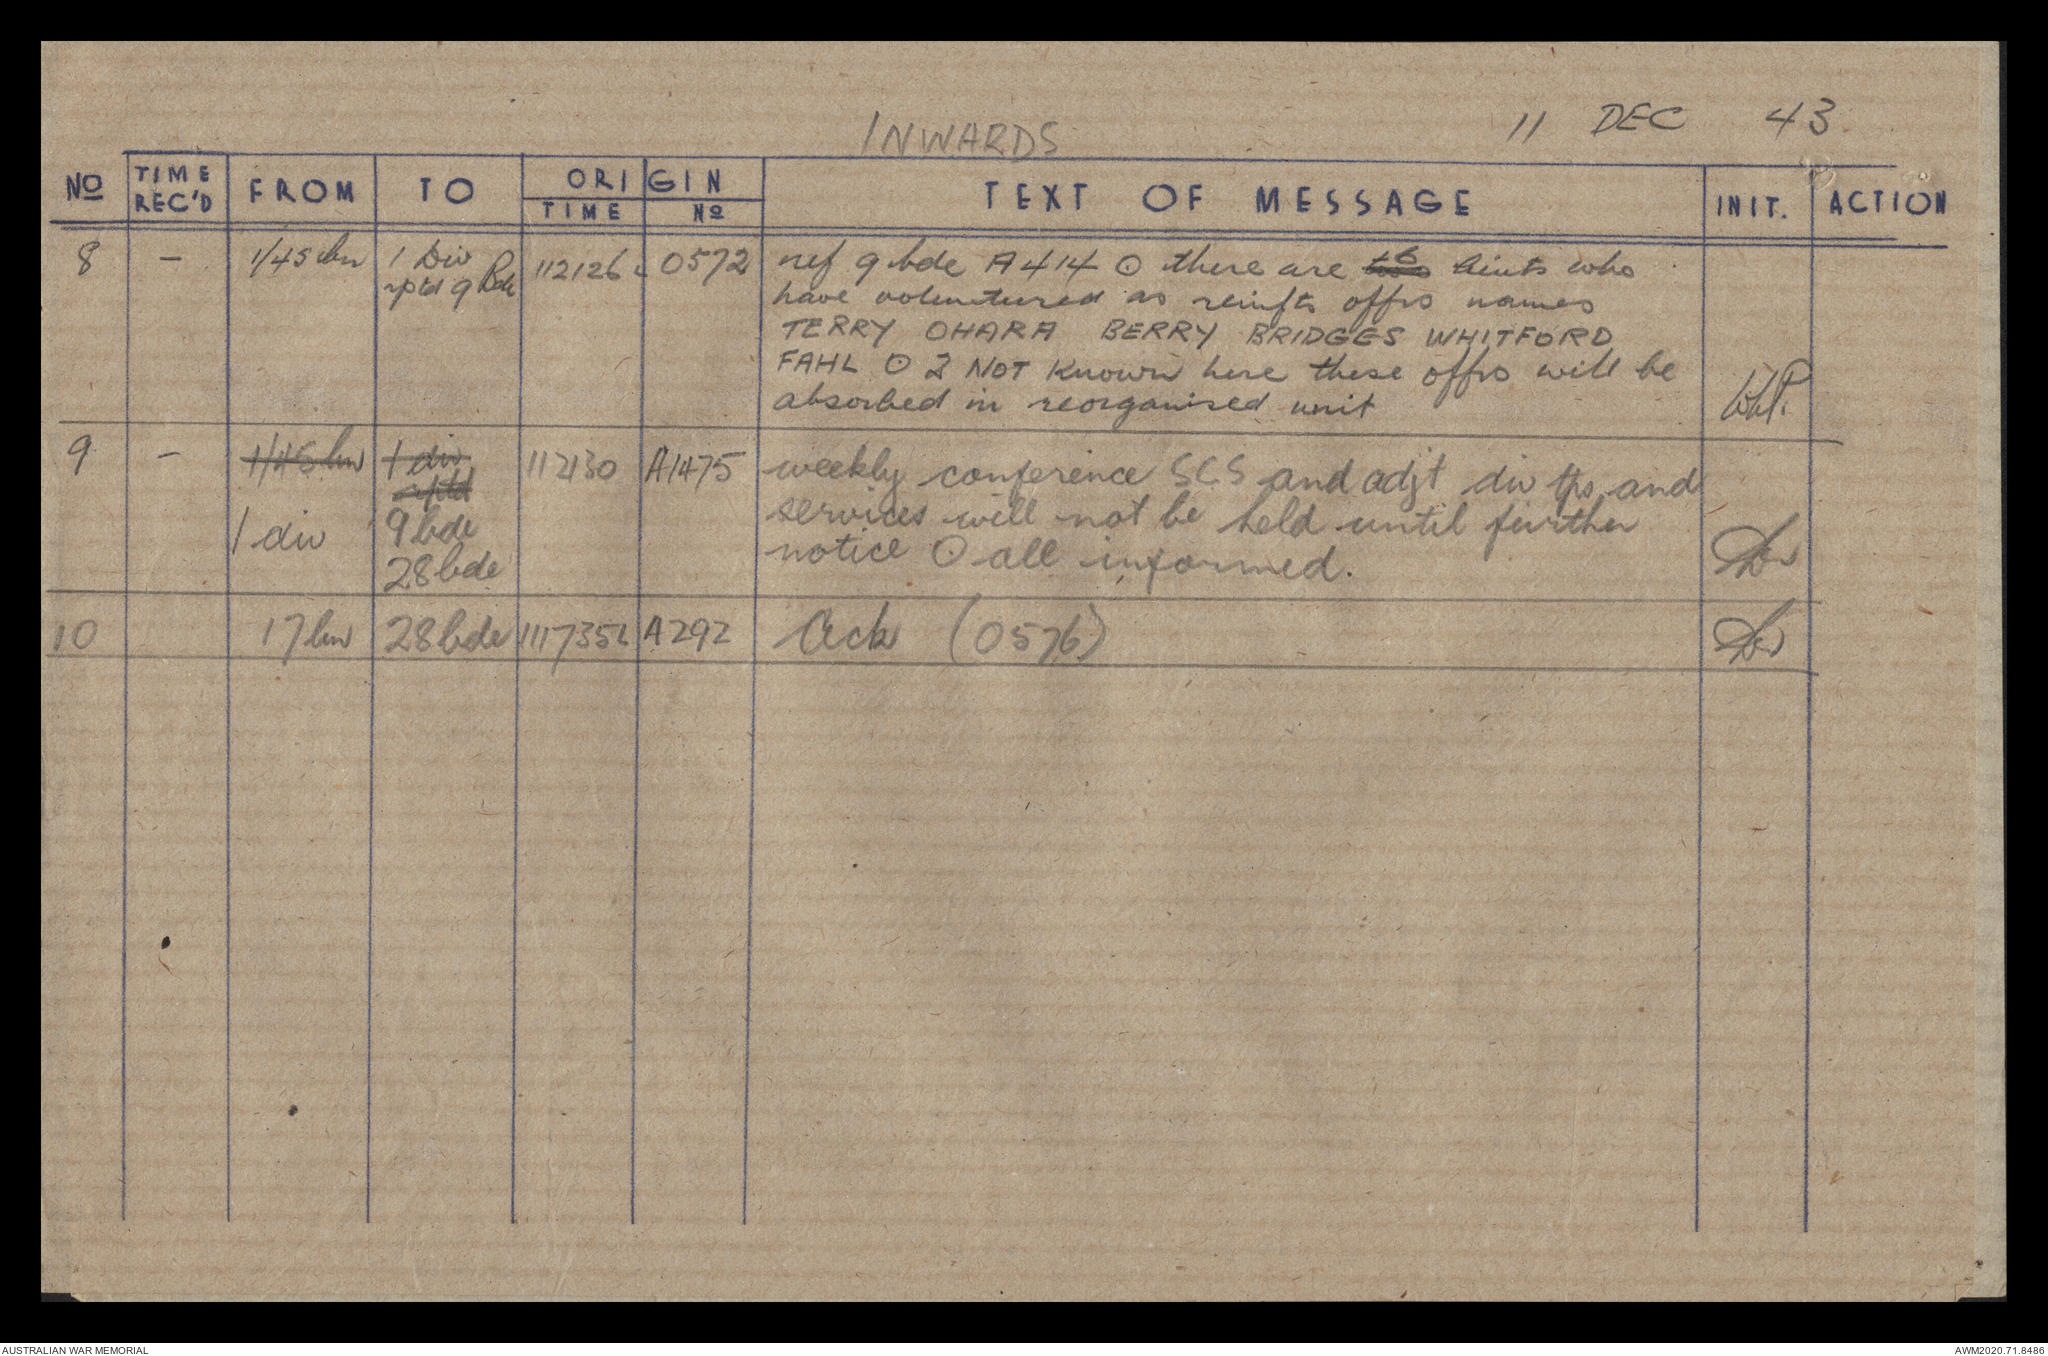 INWARDS 11 DEC 43
No TIME REC'D FROM TO ORIGIN TIME No TEXT OF MESSAGE INIT. ACTION
8 – 1/45 bn 1 Div 112126L 0572 ref 9 bde A414 ⊙ there are 6 lieuts who
rptd 9 Bde have voluntured as reinfts offrs names
TERRY OHARA BERRY BRIDGES WHITFORD
FAHL ⊙ 2 NOT known here these offrs will be
absorbed in reorganised unit
9 – 1/45 bn 1 div 112130 A1475 weekly conference SCS and adjt div tps and
rptd
1 div 9 bde services will not be held until further
28 bde notice ⊙ all informed.
10 17 bn 28 bde 111735L A292 Ack (0576)
AUSTRALIAN WAR MEMORIAL AWM2020.71.8486